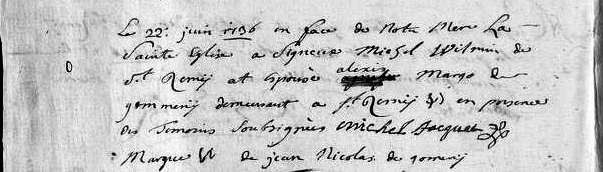 Le 22: juin 1736 en face de Notre Mere La
Sainte Eglise a Signeuez Michel Wilmin de
St Remij at Epousé alexis Margo de
gommerij demeurant a St Remij en presence
des Temoins Soubsignés Michel Jacquet
Marque W de jean Nicolas de gomerij